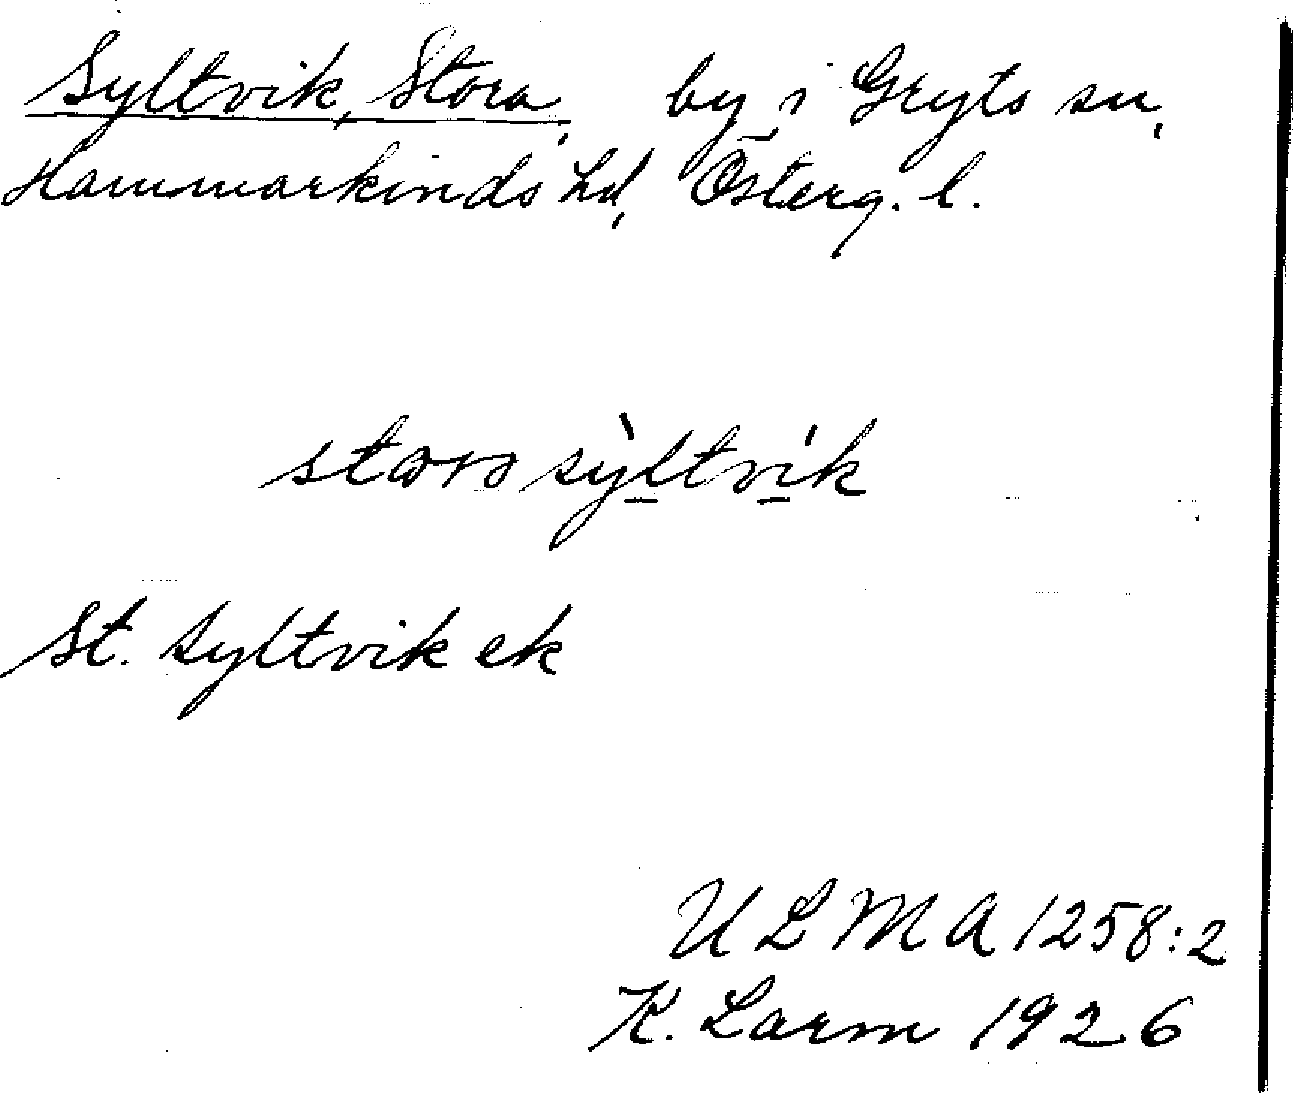 Syltvik, Stora, by i Gryts sn,
Hammarkinds hd, Österg. l.
storo sỳltvík
St. Syltvik ek
ULMA 1258:2
K. Larm 1926